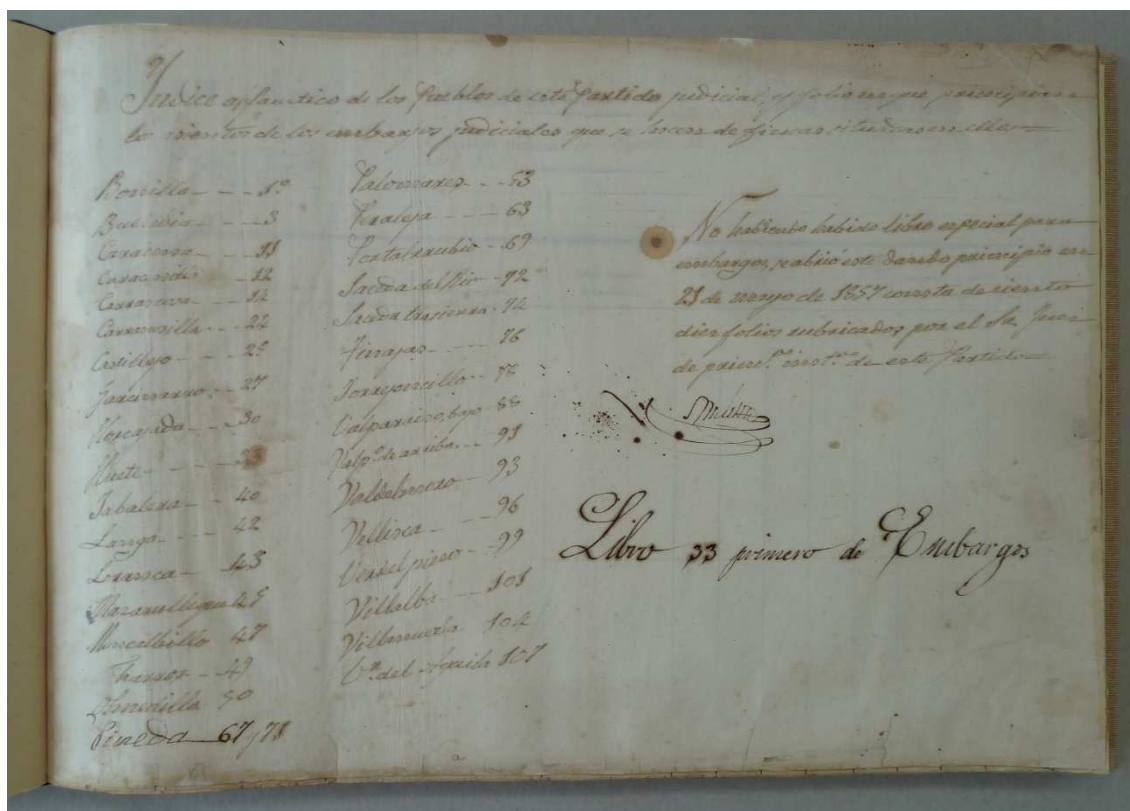 Indice alfabetico de los Pueblos de este Partido judicial, y folio en que principian
los asientos de los embargos judiciales que se hacen de fincas situadas en ellos
Bonilla 1º
Buendia 3
Caracena 11
Caracenilla 12
Carrascosa 14
Castillejo 25
Garcinarro 27
Horcajada 30
Huete
Jabalera 40
Langa 42
Loranca 43
Mazarulleque 45
Moncalbillo 47
49
Olmedilla 50
Pineda 67 y 71
Palomares 53
Peraleja 63
Portalrrubio 69
Saceda del Rio 72
Saceda trasierra 74
Tinajas 76
Torrejoncillo 78
Valparaiso, bajo 88
Valpº de arriba 91
Valdemoro 93
Vellisca 96
Verdelpino 99
Villalba 101
Villanueva 104
Vª del Aguila 107
No habiendo habido libro especial para
embargos, se abrió este dando principio en
21 de mayo de 1857 consta de ciento
diez folios rubricados por el Sr. Juez
de primª instª de este Partido
Libro 33 primero de Embargos